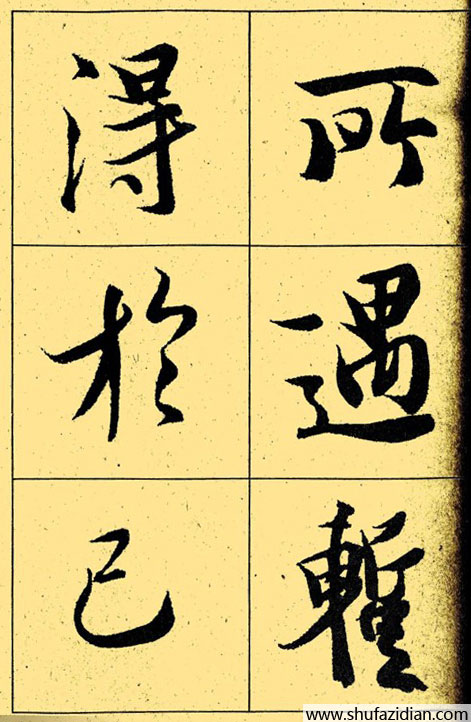 所遇暫
得於己
www.shufazidian.com